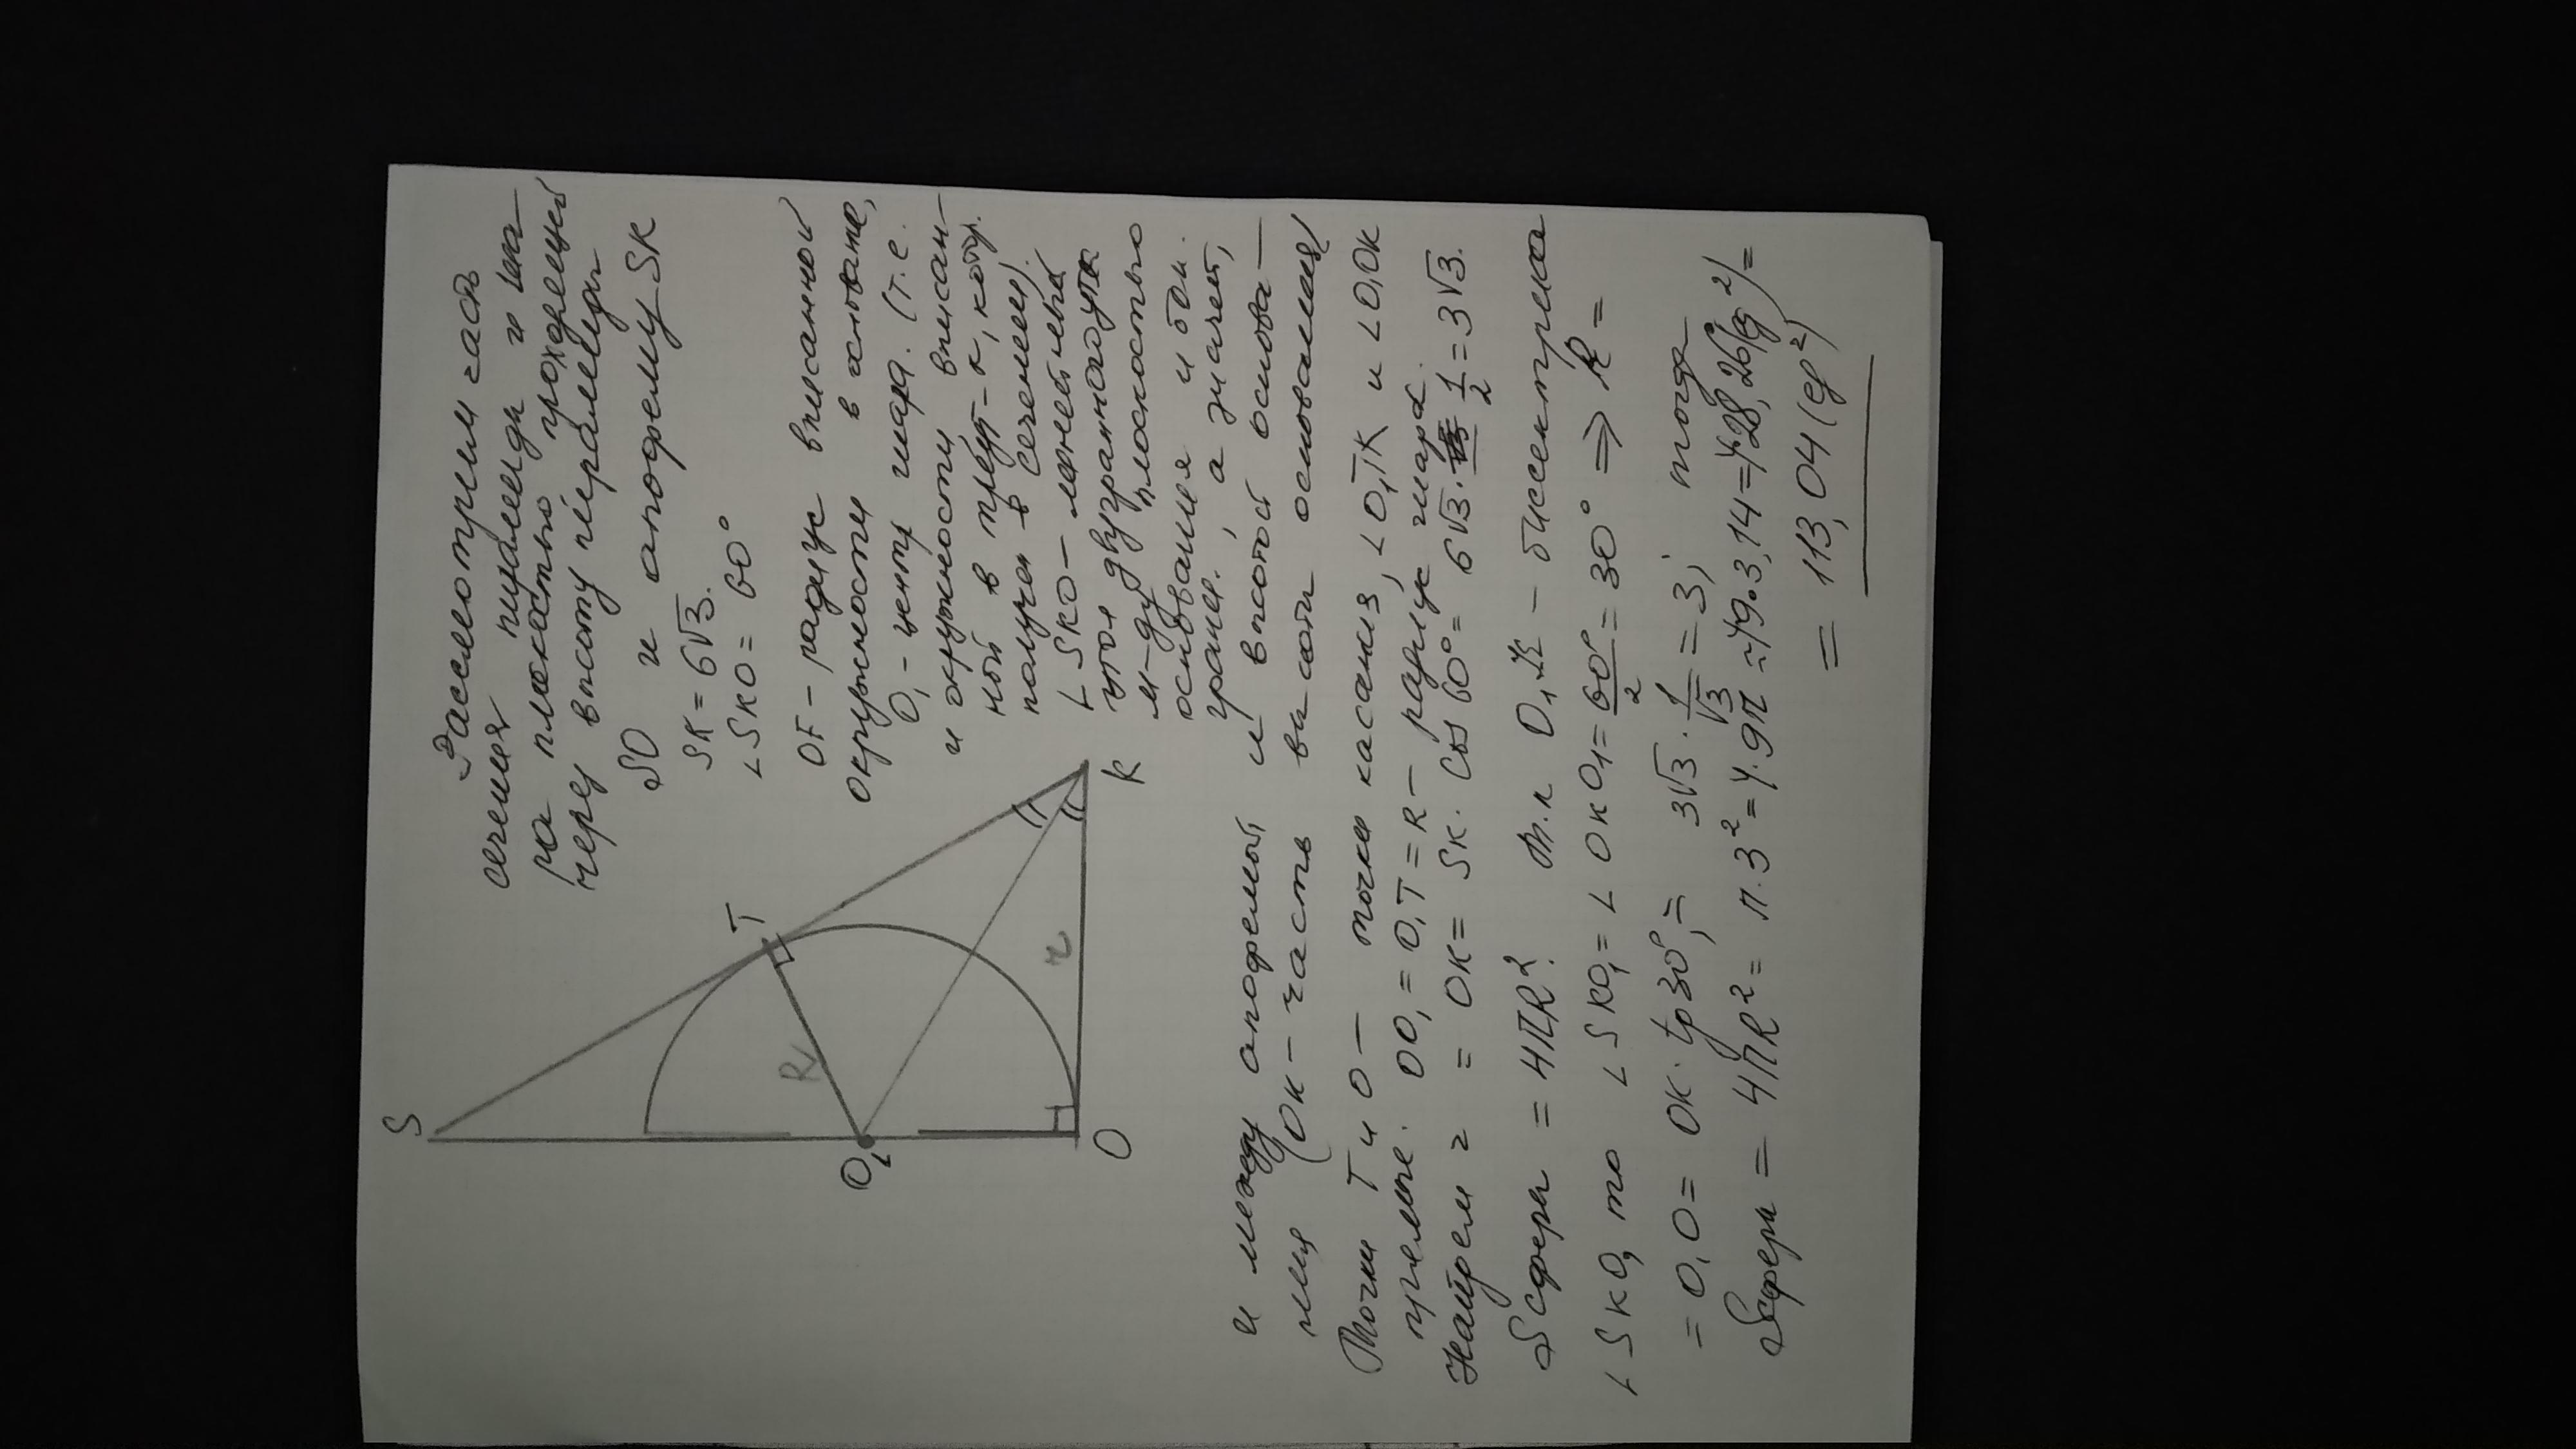 Рассмотрим часть
сечения пирамиды и ша-
ра плоскостью проходящей
через высоту пирамиды
SO и апофему SK
SK = 6√3.
∠SKO = 60°
OK – радиус вписанной
окружности в основание,
O₁ – центр шара. (т.е.
и окружности вписан-
ной в треуг-к, котор.
получен в сечении).
∠SKO – линейный
угол двугранного угла
м-ду плоскостью
основания и бок.
гранью, а значит,
и между апофемой и высотой основа-
ния (OK – часть высоты основания)
S
T
R
O₁
O
r
K
Точки T и O – точки касания, ∠O₁TK и ∠O₁OK
прямые. OO₁ = O₁T = R – радиус шара.
Найдем r = OK = SK · cos 60° = 6√3 · 1/2 = 3√3.
Sсферы = 4πR². Т.к O₁K – биссектриса
∠SKO, то ∠SKO₁ = ∠OKO₁ = 60°/2 = 30° ⇒ R =
= O₁O = OK · tg 30° = 3√3 · 1/√3 = 3; тогда
Sсферы = 4πR² = π · 3² = 4 · 9π ≈ 49 · 3,14 = 4 · 28,26 (ед²) =
= 113,04 (ед²)